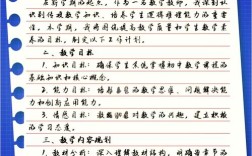 启新学期的起点，作为一名数学教师，我深刻认
识到传授数学知识、培养学生逻辑推理能力的重要
性。本学期，我将围绕提高教学质量和学生数学素
养的目标，制定以下工作计划。
一、教学目标
1. 知识目标：确保学生掌握本学期数学课程的
基础知识和核心概念。
2. 能力目标：培养学生的数学思维、问题解决能
力和创新应用能力。
3. 情感目标：激发学生对数学的兴趣，建立积极
的学习态度。
二、教学内容规划
1. 教材分析：深入理解教材结构，明确各章节的